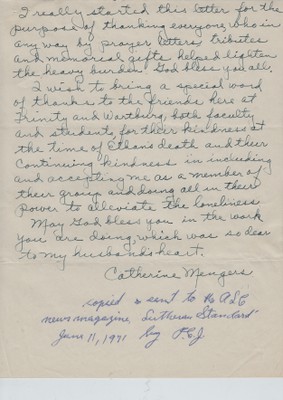 I really started this letter for the
purpose of thanking everyone who in
any way by prayer letters, tributes
and memorial gifts helped lighten
the heavy burden. God bless you all.
I wish to bring a special word
of thanks to the friends here at
Trinity and Wartburg, both faculty
and students, for their kindness at
the time of Ethan's death and their
continuing kindness in including
and accepting me as a member of
their group and doing all in their
power to alleviate the loneliness.
May God bless you in the work
you are doing, which was so dear
to my husband's heart.
Catherine Mengers
copied & sent to
news magazine "Lutheran Standard"
June 11, 1971 by